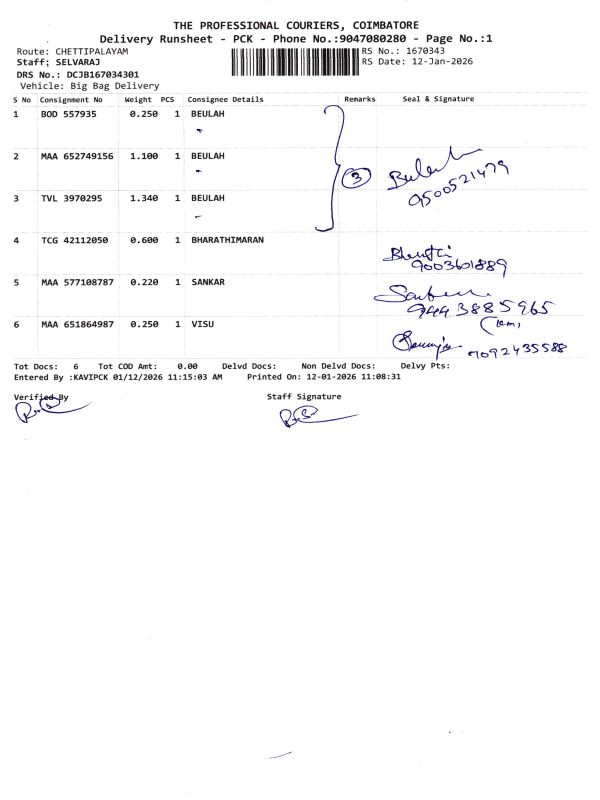 THE PROFESSIONAL COURIERS, COIMBATORE
Delivery Runsheet - PCK - Phone No.:9047080280 - Page No.:1
Route: CHETTIPALAYAM RS No.: 1670343
Staff: SELVARAJ RS Date: 12-Jan-2026
DRS No.: DCJB167034301
Vehicle: Big Bag Delivery
S No Consignment No Weight PCS Consignee Details Remarks Seal & Signature
1 BOD 557935 0.250 1 BEULAH
2 MAA 652749156 1.100 1 BEULAH
3
9500521479
3 TVL 3970295 1.340 1 BEULAH
4 TCG 42112050 0.600 1 BHARATHIMARAN
9003601889
5 MAA 577108787 0.220 1 SANKAR
9443885965
6 MAA 651864987 0.250 1 VISU
7092435588
Tot Docs: 6 Tot COD Amt: 0.00 Delvd Docs: Non Delvd Docs: Delvy Pts:
Entered By :KAVIPCK 01/12/2026 11:15:03 AM Printed On: 12-01-2026 11:08:31
Verified By Staff Signature